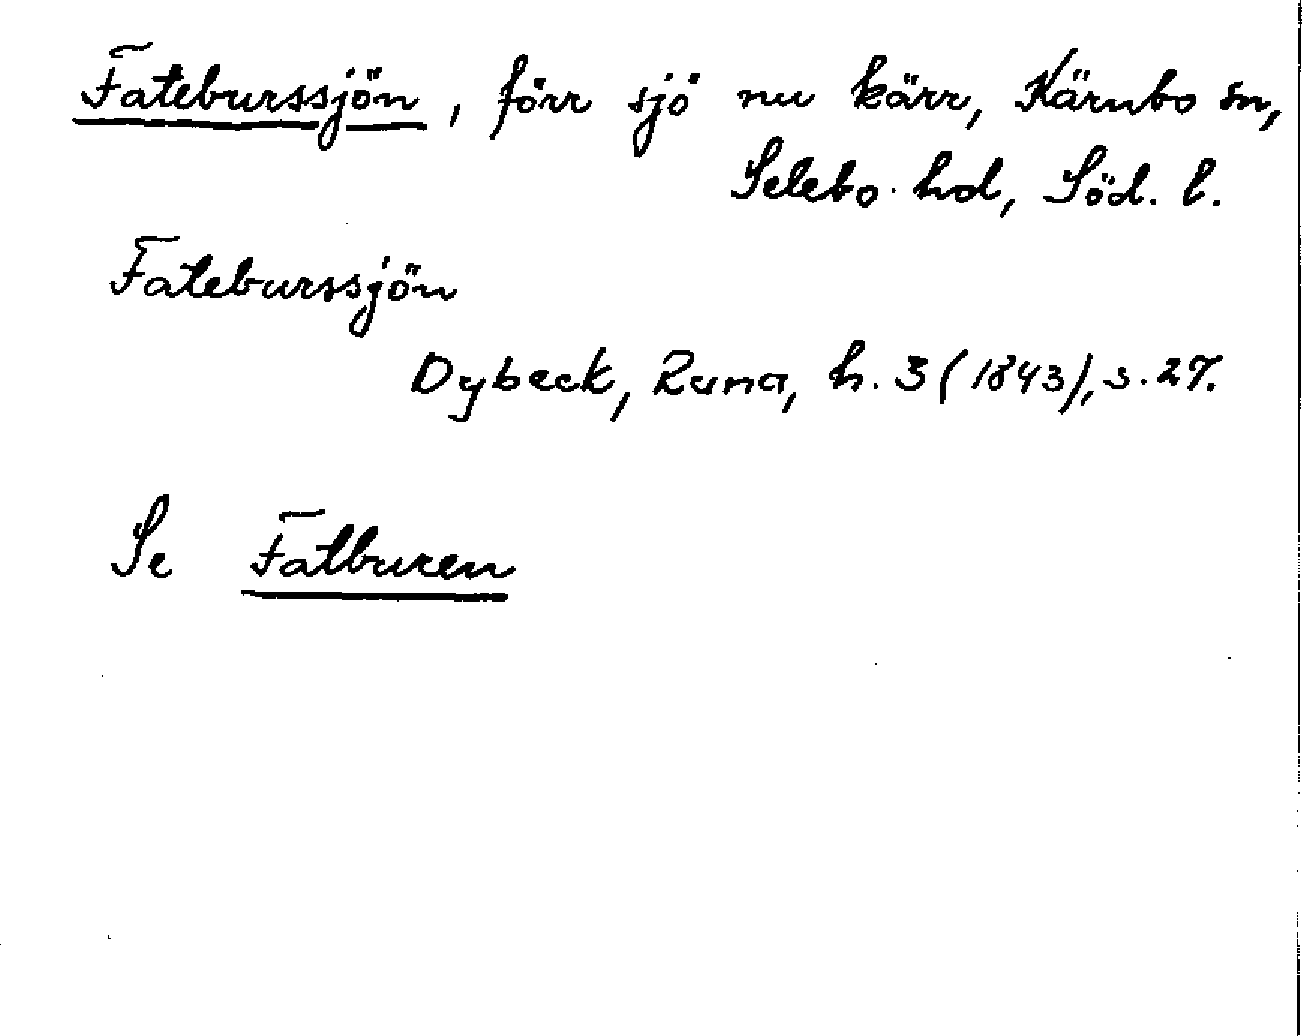 Fateburssjön, förr sjö nu kärr, Kärnbo sn,
Selebo hd, Söd. l.
Fateburssjön
Dybeck, Runa, h. 3 (1843), s. 27.
Se Fatburen